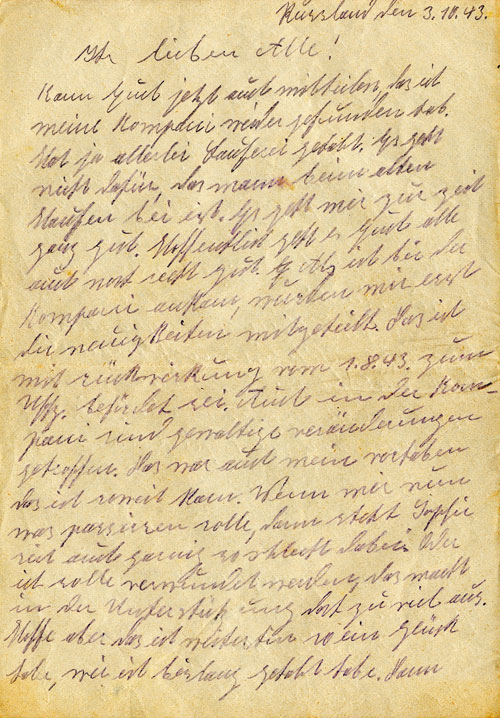 Russland den 3.10.43.
Ihr lieben Alle!
Kann Euch jetzt auch mitteilen, das ich
meine Kompani wieder gefunden hab.
Hat ja allerlei Lauferei gekostet. Es geht
nicht dafür, das mann beim alten
Haufen bei ist. Es geht mir zur zeit
ganz gut. Hoffentlich geht es Euch alle
auch noch recht gut. Als ich bei der
Kompani ankam, wurden mir erst
die neuigkeiten mitgeteilt. Das ich
mit rückwirkung vom 1.8.43. zum
Uffz. befördet sei. Auch in der Kom-
pani sind gewaltige veränderungen
getroffen. Das war auch mein vorhaben
das ich soweit kam. Wenn mir nun
was passieren solle, dann steht Sophie
sich auch garnis so schlecht dabei. Oder
ich solle verwundet werden, das macht
in der Unterstützung doch zu viel aus.
Hoffe aber das ich weiterhin so ein Glück
habe, wie ich bislang gehabt habe. Dann